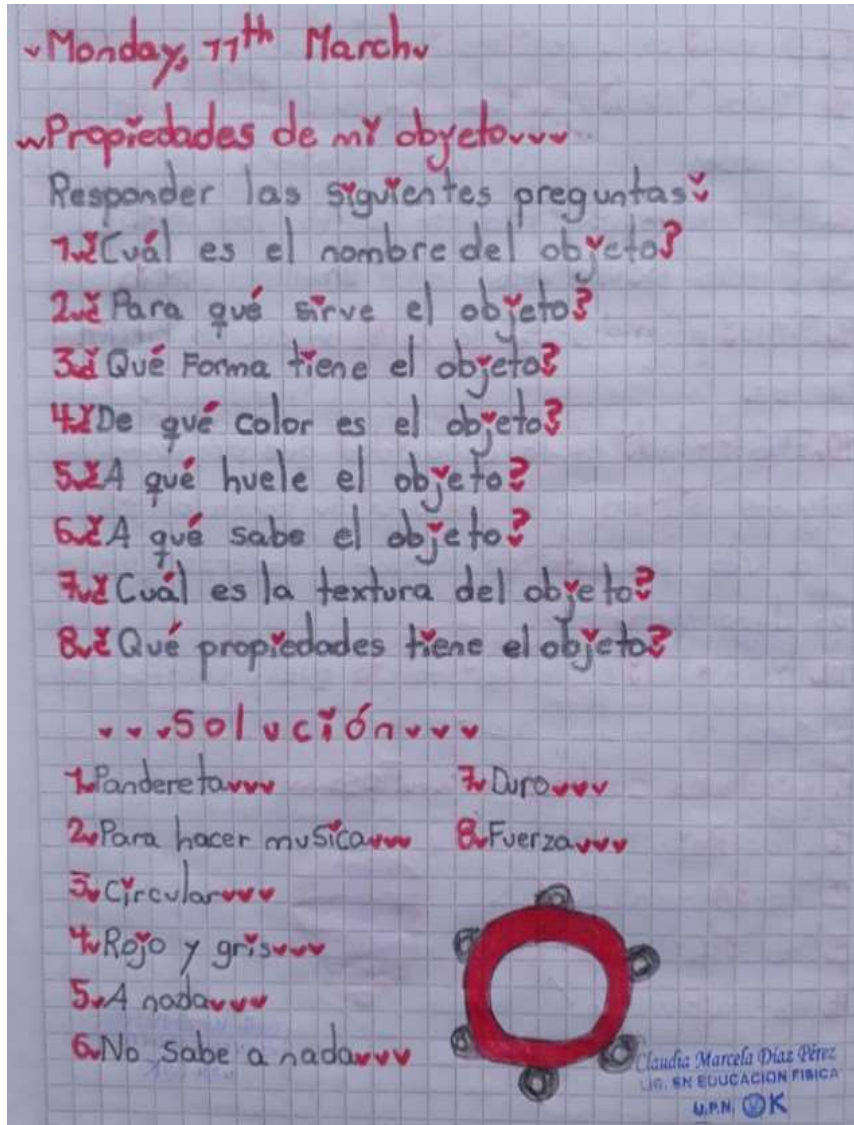 Monday, 11th March
Propiedades de mi objeto
Responder las siguientes preguntas:
1. ¿Cuál es el nombre del objeto?
2. ¿Para qué sirve el objeto?
3. ¿Qué Forma tiene el objeto?
4. ¿De qué color es el objeto?
5. ¿A qué huele el objeto?
6. ¿A qué sabe el objeto?
7. ¿Cuál es la textura del objeto?
8. ¿Qué propiedades tiene el objeto?
Solución
1. Pandereta
2. Para hacer musica
3. Circular
4. Rojo y gris
5. A nada
6. No sabe a nada
7. Duro
8. Fuerza
Claudia Marcela Díaz Pérez
LIC. EN EDUCACION FISICA
U.P.N. OK